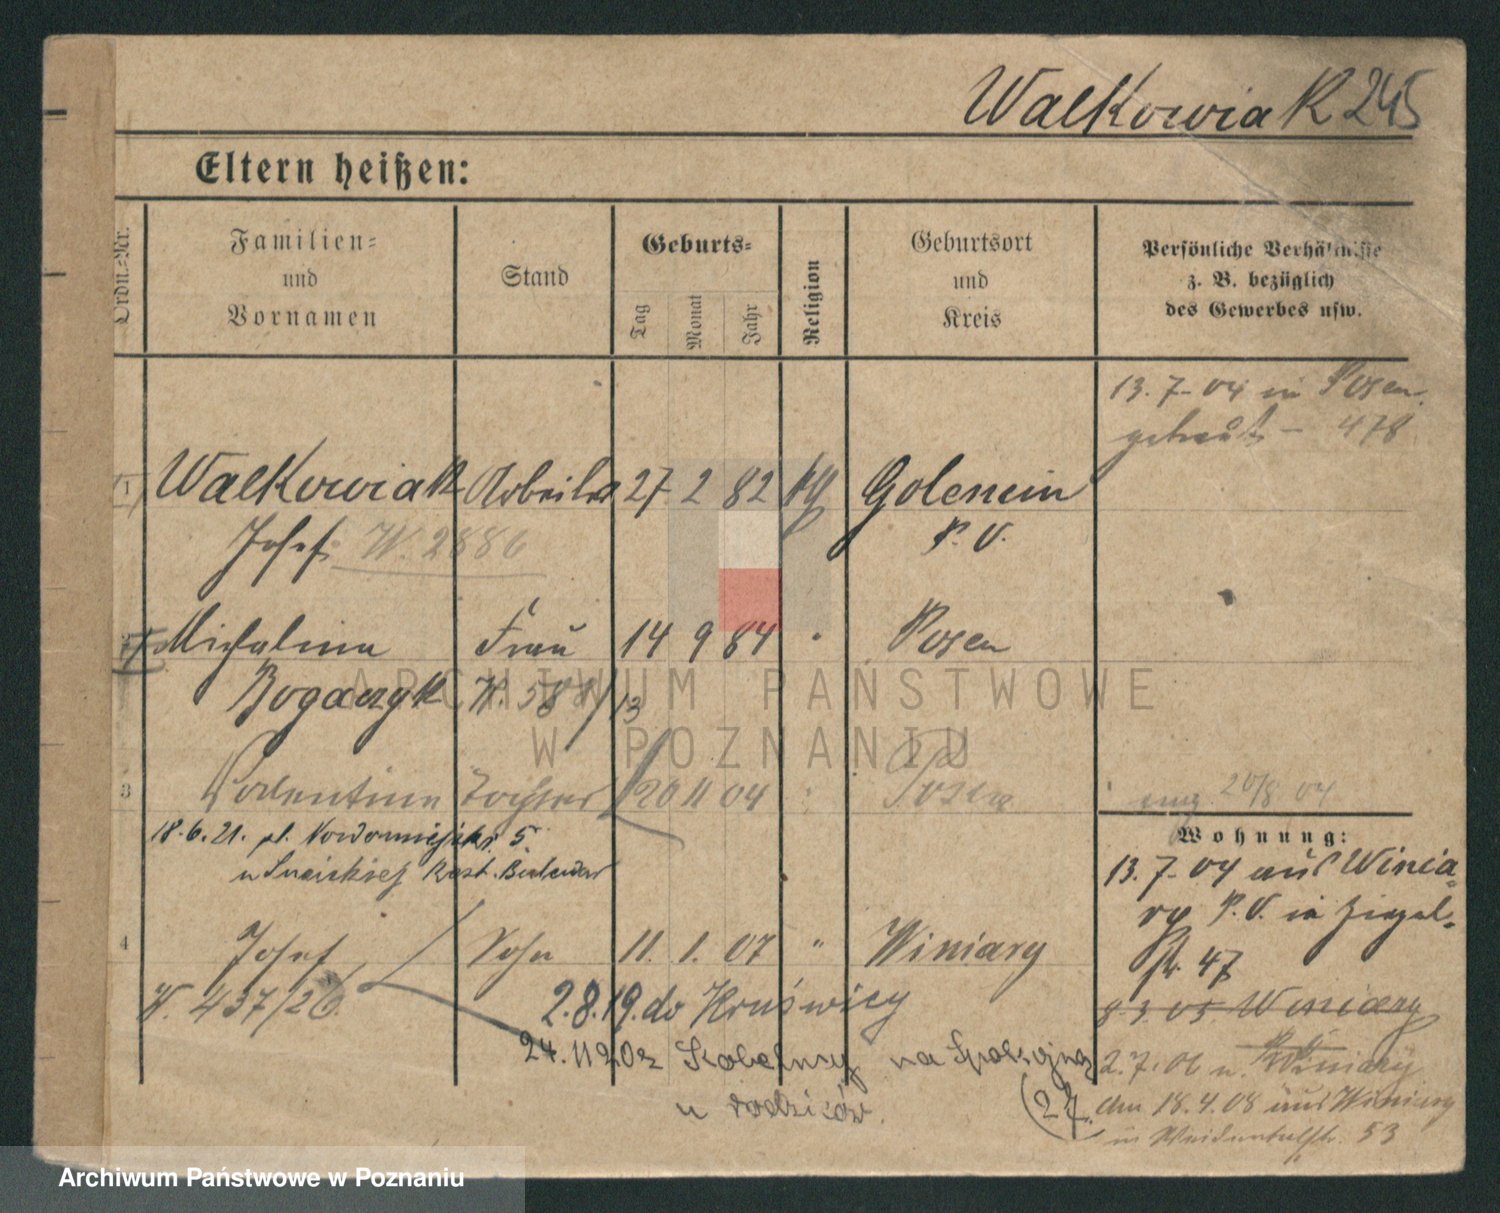 Walkowiak 245
Eltern heißen:
Ordn.-Nr.
Familien-
und
Vornamen
Stand
Geburts-
Tag
Monat
Jahr
Religion
Geburtsort
und
Kreis
Persönliche Verhältnisse
z. B. bezüglich
des Gewerbes usw.
13. 7. 04 in Posen
getraut - 478
1 Walkowiak Arbeiter 27 2 82 kg Golencin
Josef W. 2886 P. O.
Michalina Frau 14 9 84 " Posen
Bogaczyk W. 588/13
3 Valentine Tochter 20 11 04 " Posen
20/8 04
18.6.21. pl. 5.
Wohnung:
13. 7. 04 aus Winia-
ry P. O. in Ziegel-
str. 47
4 Josef Sohn 11. 1. 07 " Winiary
W. 437/26
2.8.19. do Kruświcy
8.3.05 Winiary
24.11.20 z Kobelnicy na Spokojną
2.7.06 n. Winiary
u rodziców. (27.
den 18.4.08 aus Winiary
in Weidentalstr. 53
ARCHIWUM PAŃSTWOWE
W POZNANIU
Archiwum Państwowe w Poznaniu